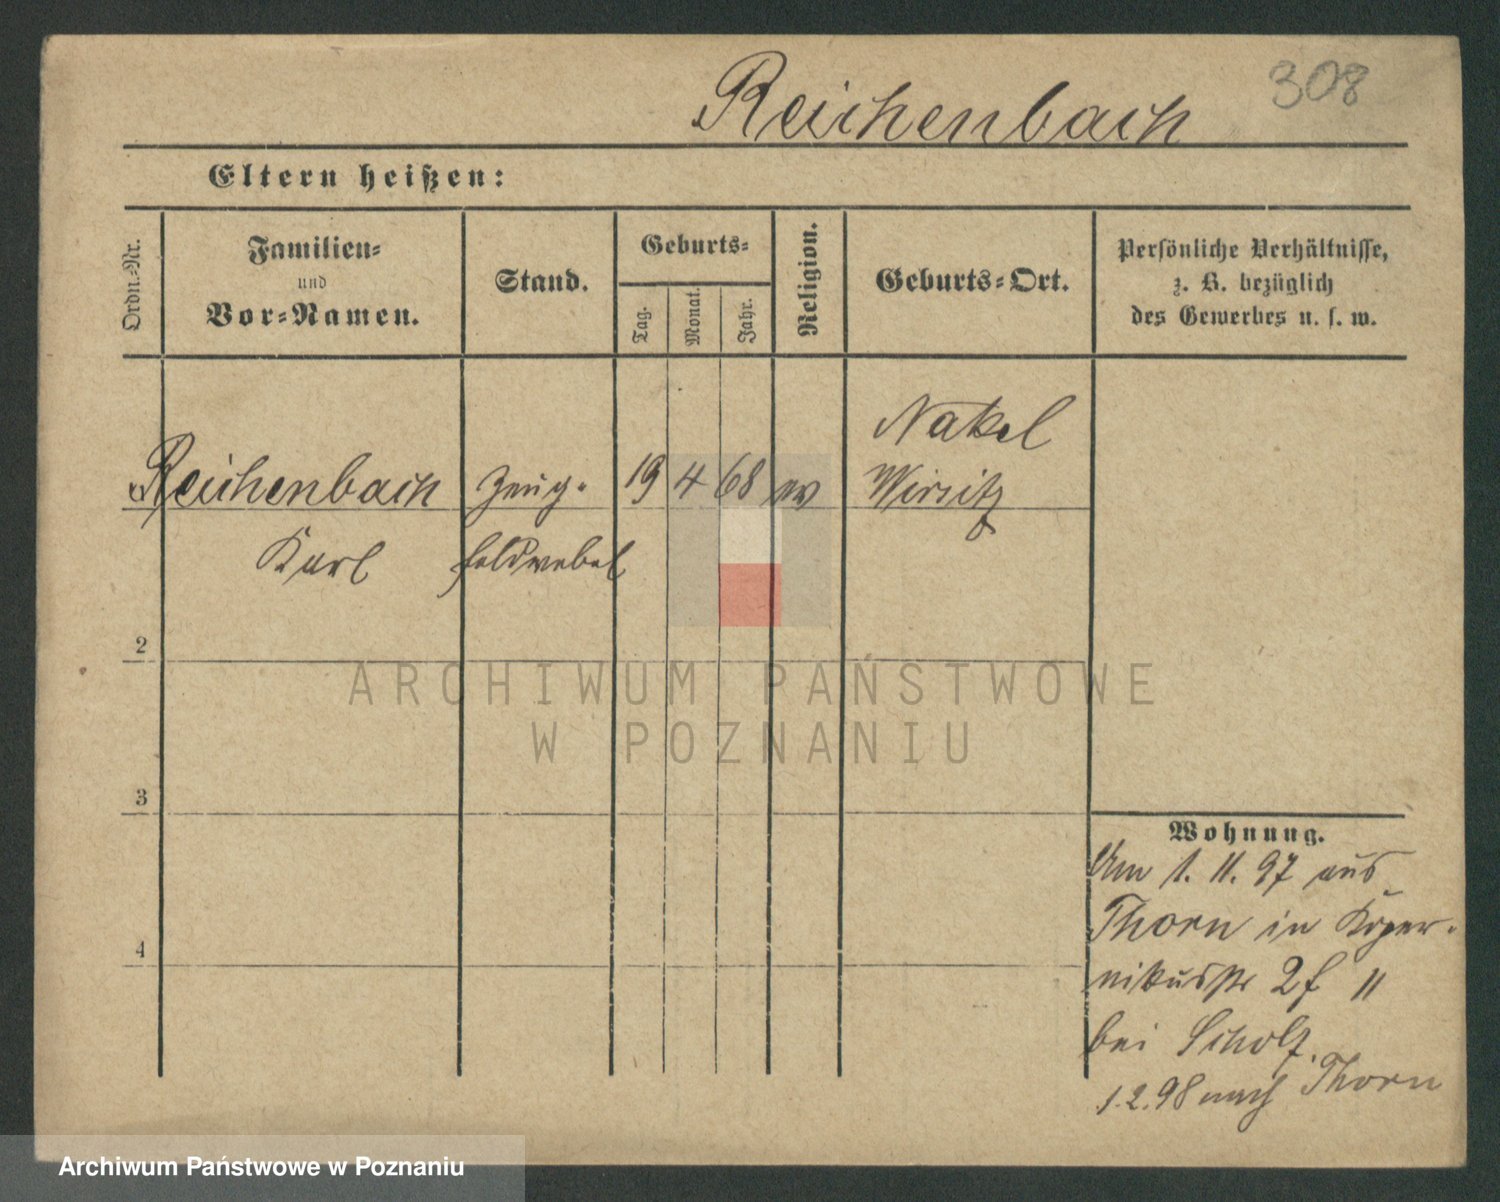 Reichenbach 308
Eltern heißen:
Ordn.-Nr.
Familien-
und
Vor-Namen.
Stand.
Geburts-
Tag.
Monat.
Jahr.
Religion.
Geburts-Ort.
Persönliche Verhältnisse,
z. B. bezüglich
des Gewerbes u. s. w.
Reichenbach
Karl
Zeug-
feldwebel
19 4 68 ev
Nakel
Wirsitz
2
3
4
Wohnung.
Am 1. 11. 97 aus
Thorn in Koper-
nikusstr 2f II
bei Scholz.
1.2.98 nach Thorn
ARCHIWUM PAŃSTWOWE
W POZNANIU
Archiwum Państwowe w Poznaniu